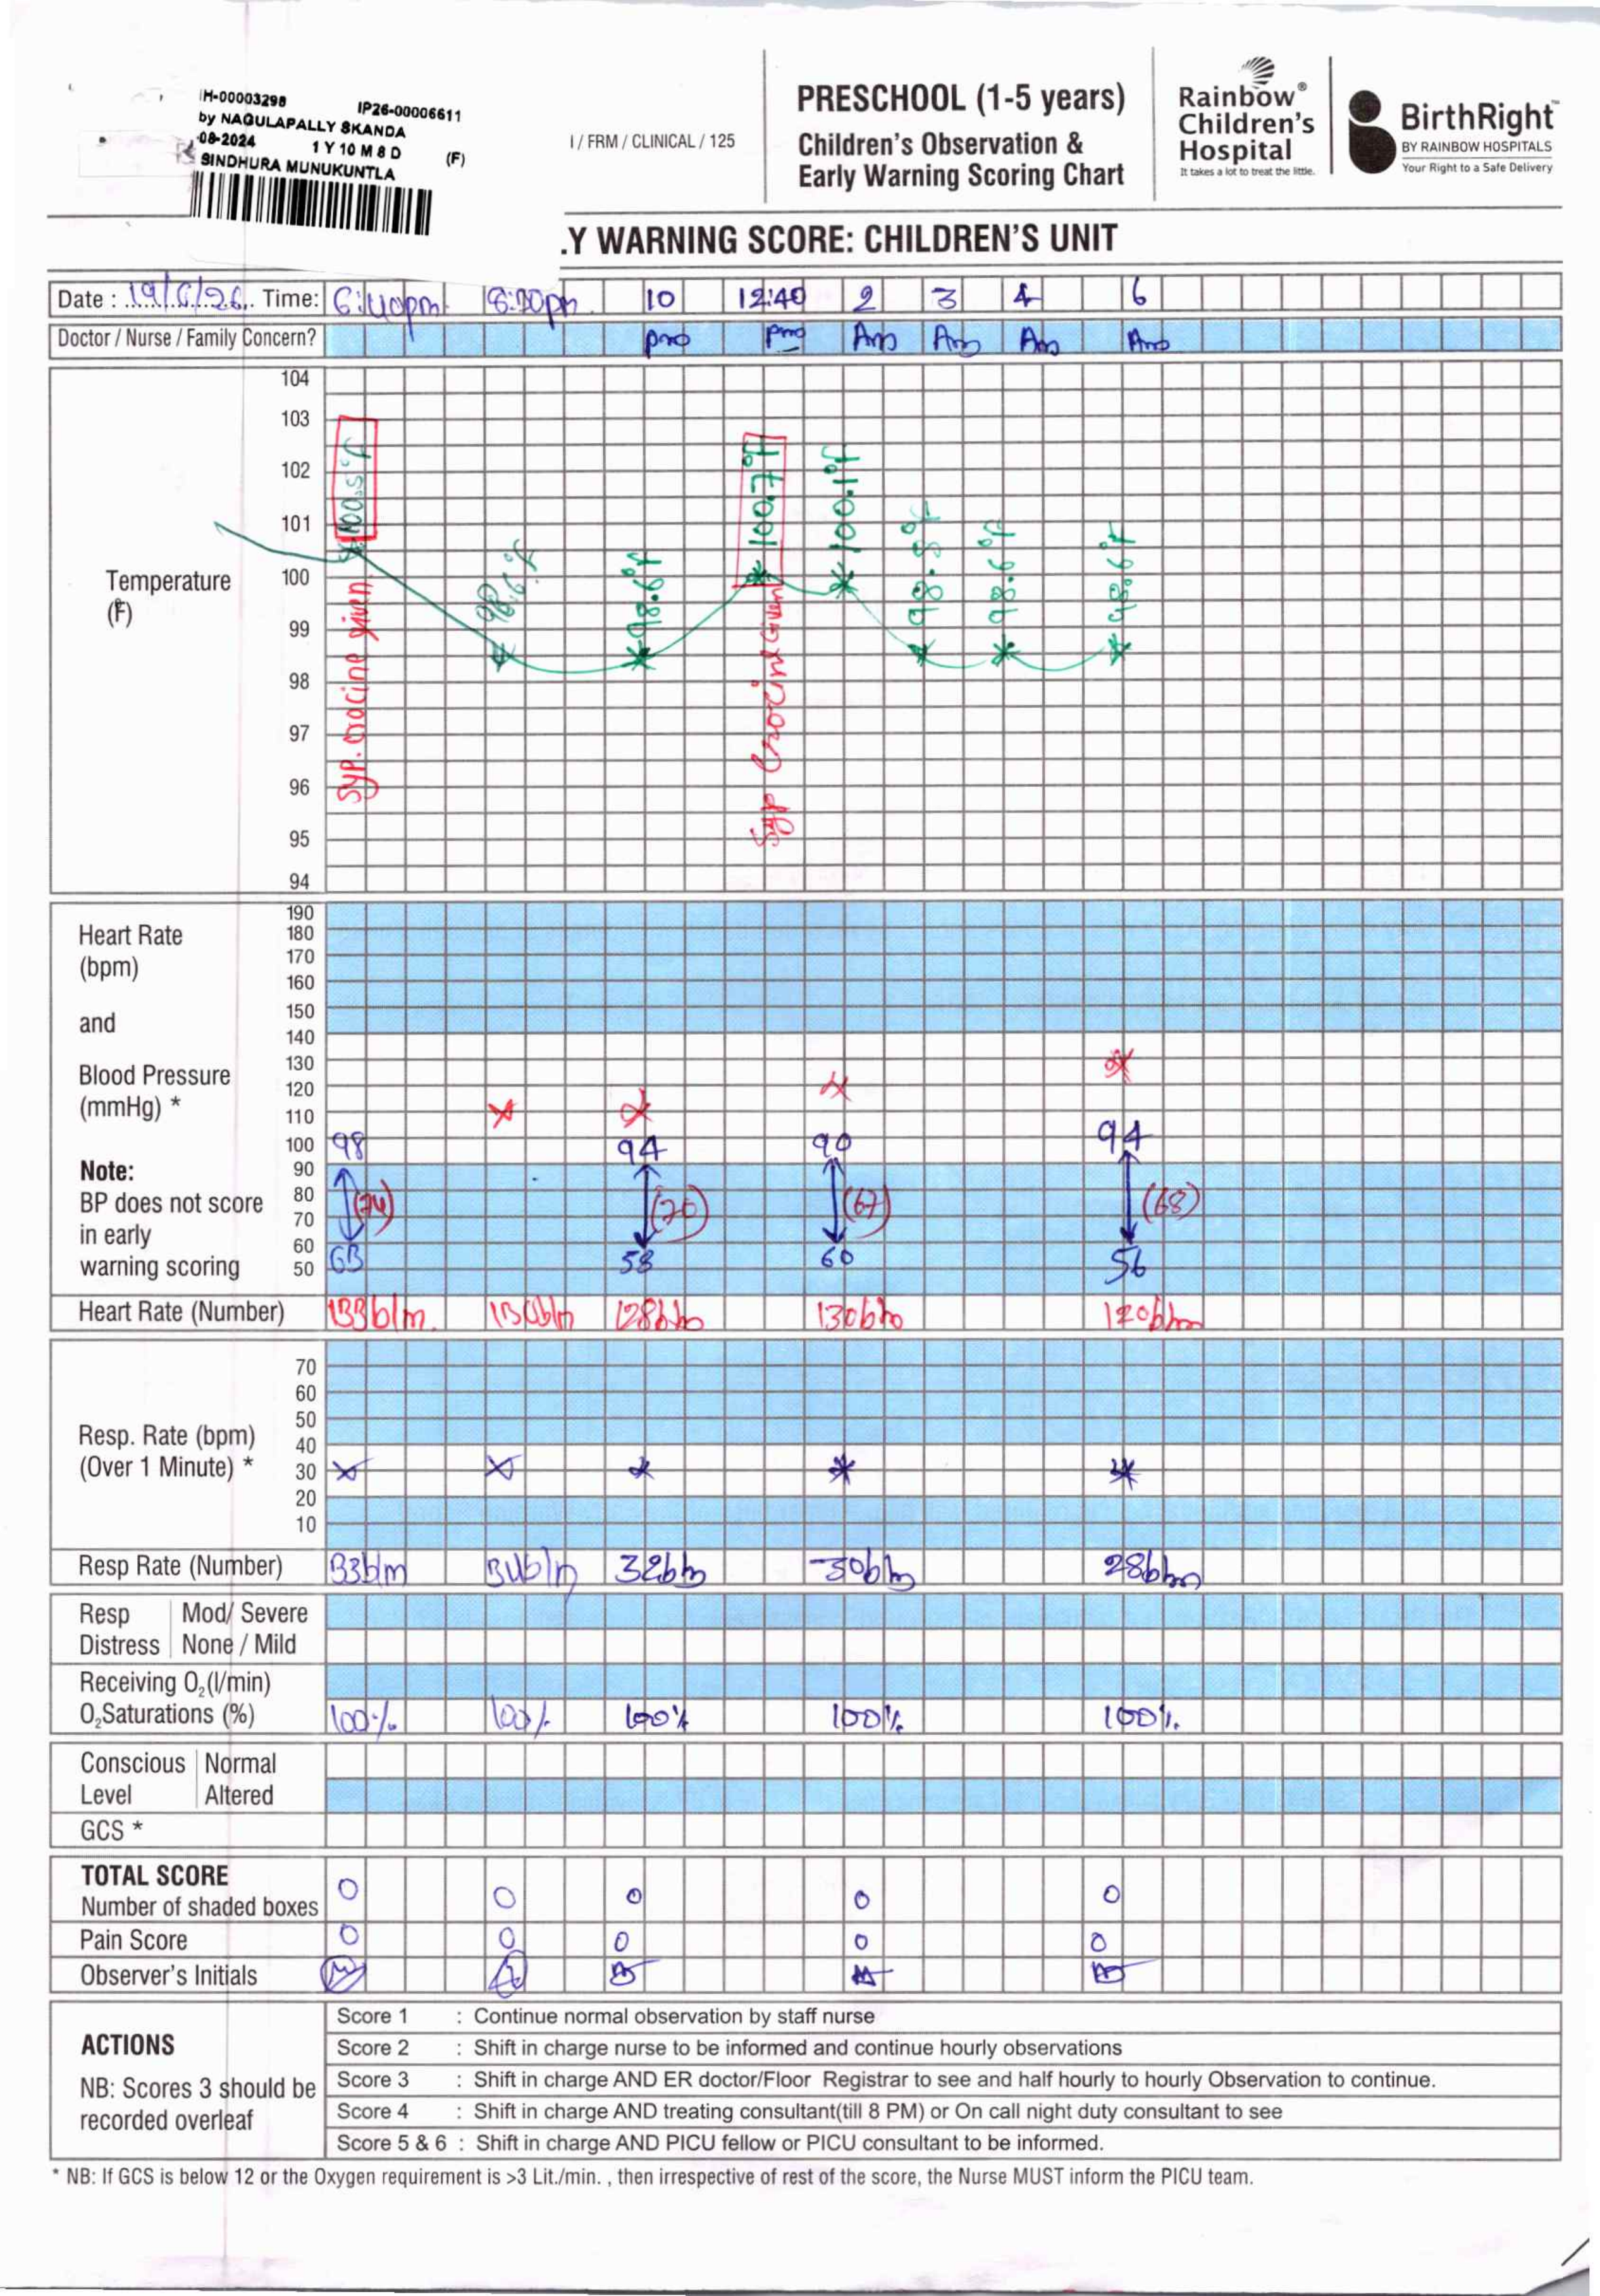 IH-00003298 IP26-00006611
by NAGULAPALLY SKANDA
-08-2024 1 Y 10 M 8 D (F)
SINDHURA MUNUKUNTLA
I / FRM / CLINICAL / 125
PRESCHOOL (1-5 years)
Children's Observation &
Early Warning Scoring Chart
Rainbow®
Children's
Hospital
It takes a lot to treat the little.
BirthRight™
BY RAINBOW HOSPITALS
Your Right to a Safe Delivery
.Y WARNING SCORE: CHILDREN'S UNIT
Date : 19/6/26 Time: 6:40pm 8:30pm 10 12:40 2 3 4 6
Doctor / Nurse / Family Concern? pm pm Am Am Am Am
104
103
102
101
100
99
98
97
96
95
94
Temperature
(F)
100.5°F 98.6°F 98.6°F 100.7°F 100.1°F 98.5°F 98.6°F 98.6°F
Syp. crocine given
Syp Crocine Given
Heart Rate
(bpm)
and
Blood Pressure
(mmHg) *
Note:
BP does not score
in early
warning scoring
190
180
170
160
150
140
130
120
110
100
90
80
70
60
50
98 94 90 94
(67) (68)
58 60 56
Heart Rate (Number) 133b/m 130b/m 128b/m 130b/m 120b/m
Resp. Rate (bpm)
(Over 1 Minute) *
70
60
50
40
30
20
10
Resp Rate (Number) 33b/m 34b/m 32b/m 30b/m 28b/m
Resp Distress Mod/ Severe
None / Mild
Receiving O₂(l/min)
O₂Saturations (%) 100% 100% 100% 100% 100%
Conscious Level Normal
Altered
GCS *
TOTAL SCORE
Number of shaded boxes 0 0 0 0 0
Pain Score 0 0 0 0 0
Observer's Initials
ACTIONS
NB: Scores 3 should be
recorded overleaf
Score 1 : Continue normal observation by staff nurse
Score 2 : Shift in charge nurse to be informed and continue hourly observations
Score 3 : Shift in charge AND ER doctor/Floor Registrar to see and half hourly to hourly Observation to continue.
Score 4 : Shift in charge AND treating consultant(till 8 PM) or On call night duty consultant to see
Score 5 & 6 : Shift in charge AND PICU fellow or PICU consultant to be informed.
* NB: If GCS is below 12 or the Oxygen requirement is >3 Lit./min. , then irrespective of rest of the score, the Nurse MUST inform the PICU team.